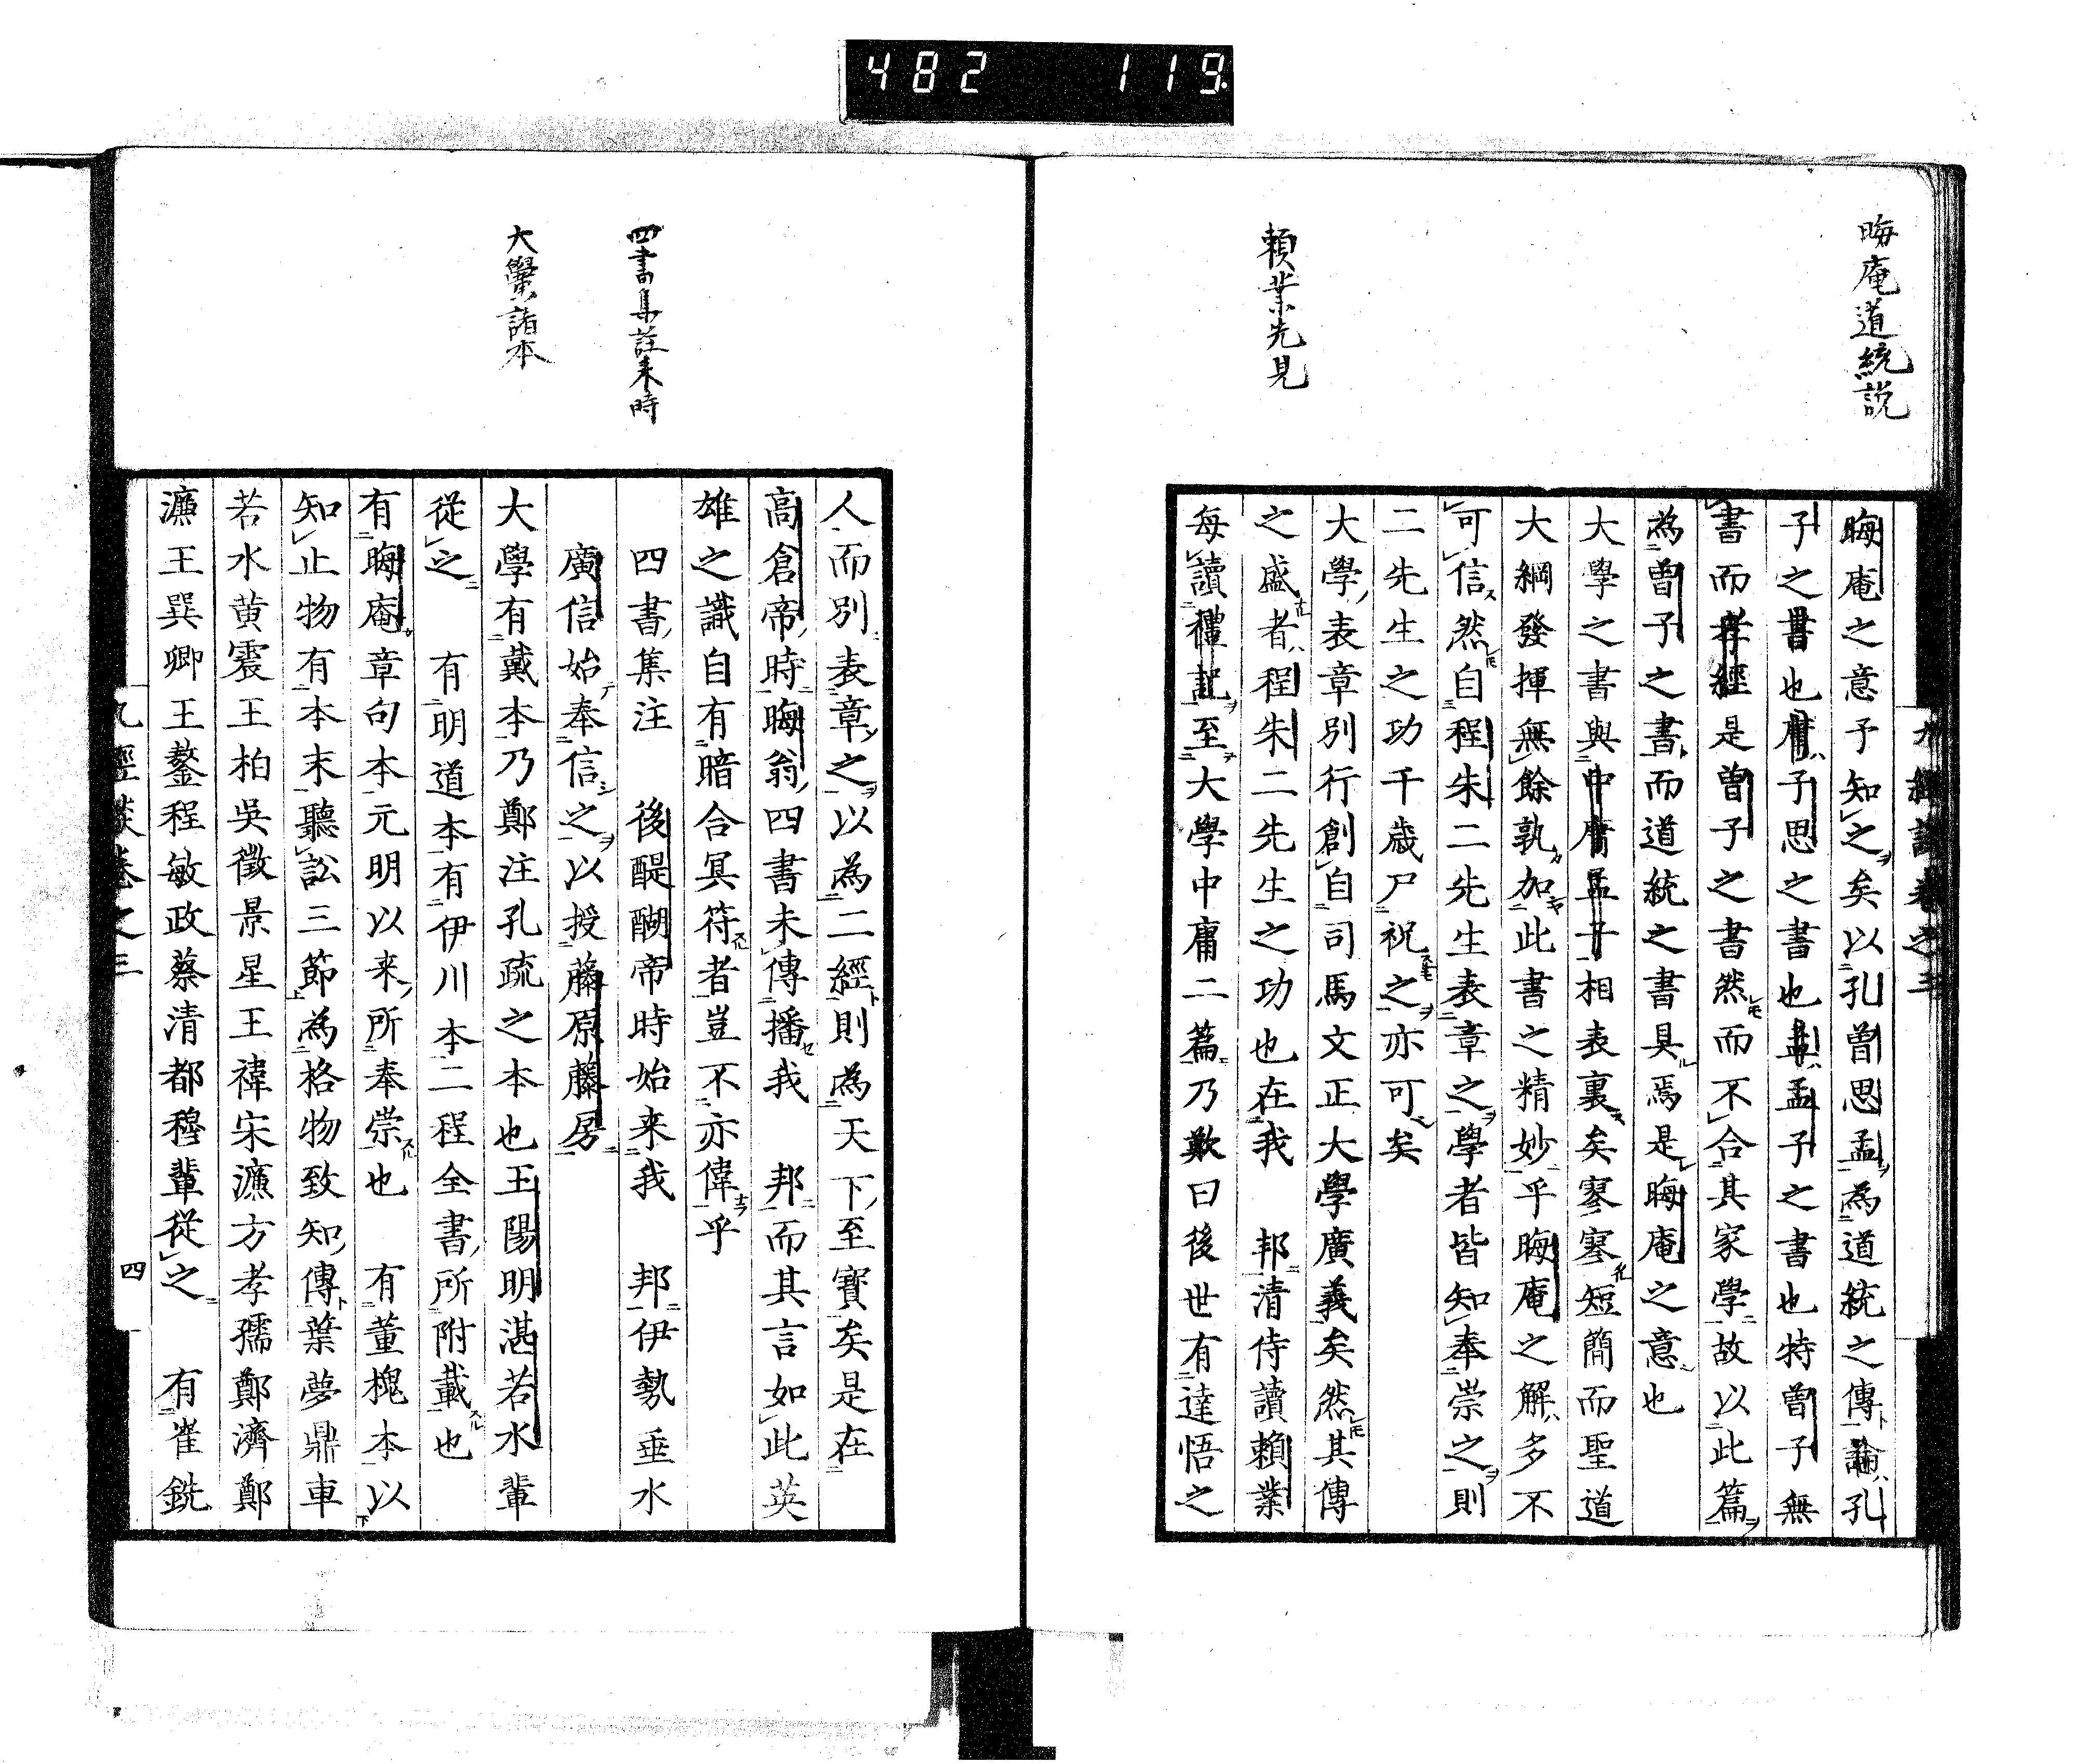 482 119
晦庵道統説
頼業先見
九經談卷之三
晦庵之意予知之矣以孔曽思孟為道統之傳論孔
子之書也庸子思之書也孟孟子之書也特曽子無
書而孝經是曽子之書然而不合其家學故以此篇
為曽子之書而道統之書具焉是晦庵之意也
大學之書與中庸孟子相表裏矣寥寥短簡而聖道
大綱發揮無餘孰加此書之精妙乎晦庵之解多不
可信然自程朱二先生表章之學者皆知奉崇之則
二先生之功千歳尸祝之亦可矣
大學表章別行創自司馬文正大學廣義矣然其傳
之盛者程朱二先生之功也在我 邦清侍讀賴業
每讀禮記至大學中庸二篇乃歎曰後世有達悟之
四書集註来時
大學諸本
人而別表章之以為二經則為天下至寳矣是在
高倉帝時晦翁四書未傳播我 邦而其言如此英
雄之識自有暗合冥符者豈不亦偉乎
四書集注 後醍醐帝時始来我 邦伊勢垂水
廣信始奉信之以授藤原藤房
大學有戴本乃鄭注孔疏之本也王陽明湛若水輩
從之 有明道本有伊川本二程全書所附載也
有晦庵章句本元明以来所奉崇也 有董槐本以
知止物有本末聽訟三節為格物致知傳葉夢鼎車
若水黄震王柏吳徵景星王禕宋濂方孝孺鄭濟鄭
濂王巽卿王鏊程敏政蔡清都穆輩從之 有崔銑
九經談卷之三
四